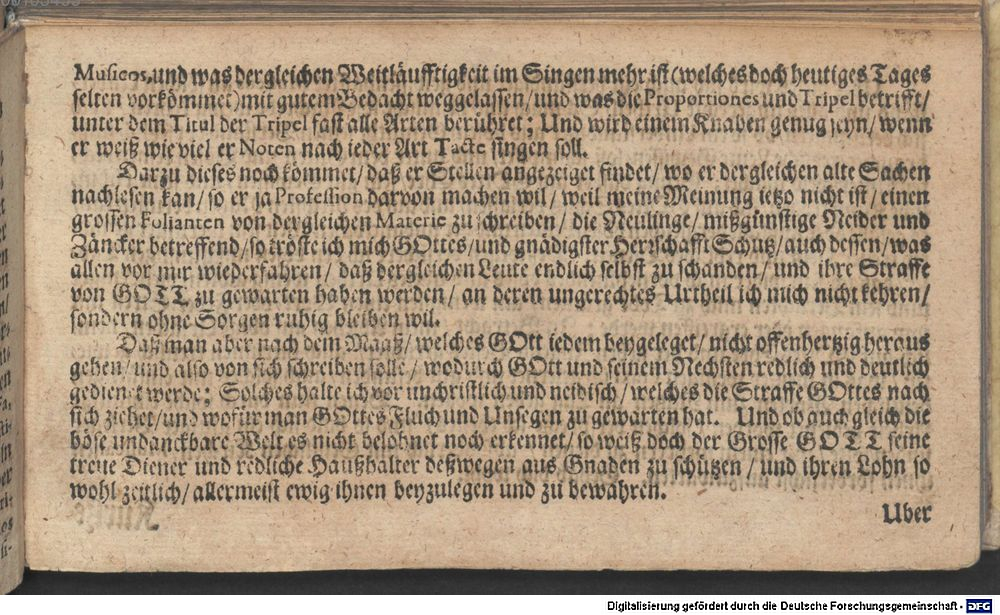 Musicos, und was dergleichen Weitläufftigkeit im Singen mehr ist (welches doch heutiges Tages
selten vorkömmet) mit gutem Bedacht weggelassen / und was die Proportiones und Tripel betrifft /
unter dem Titul der Tripel fast alle Arten berühret; Und wird einem Knaben genug seyn / wenn
er weiß wie viel er Noten nach ieder Art Tacte singen soll.
Darzu dieses noch kömmet / daß er Stellen angezeiget findet / wo er dergleichen alte Sachen
nachlesen kan / so er ja Profession darvon machen wil / weil meine Meinung ietzo nicht ist / einen
grossen Folianten von dergleichen Materie zu schreiben / die Neulinge / mißgünstige Neider und
Zäncker betreffend / so tröste ich mich GOttes / und gnädigster Herrschafft Schutz / auch dessen / was
allen vor mir wiederfahren / daß dergleichen Leute endlich selbst zu schanden / und ihre Straffe
von GOTT zu gewarten haben werden / an deren ungerechtes Urtheil ich mich nicht kehren /
sondern ohne Sorgen ruhig bleiben wil.
Daß man aber nach dem Maaß / welches GOtt iedem beygeleget / nicht offenhertzig heraus
gehen / und also von sich schreiben solle / wodurch GOtt und seinem Nechsten redlich und deutlich
gedienet werde; Solches halte ich vor unchristlich und neidisch / welches die Straffe GOttes nach
sich ziehet / und wofür man GOttes Fluch und Unsegen zu gewarten hat. Und ob auch gleich die
böse undanckbare Welt es nicht belohnet noch erkennet / so weiß doch der Grosse GOTT seine
treue Diener und redliche Haußhalter deßwegen aus Gnaden zu schützen / und ihren Lohn so
wohl zeitlich / allermeist ewig ihnen beyzulegen und zu bewahren.
Uber
Digitalisierung gefördert durch die Deutsche Forschungsgemeinschaft - DFG